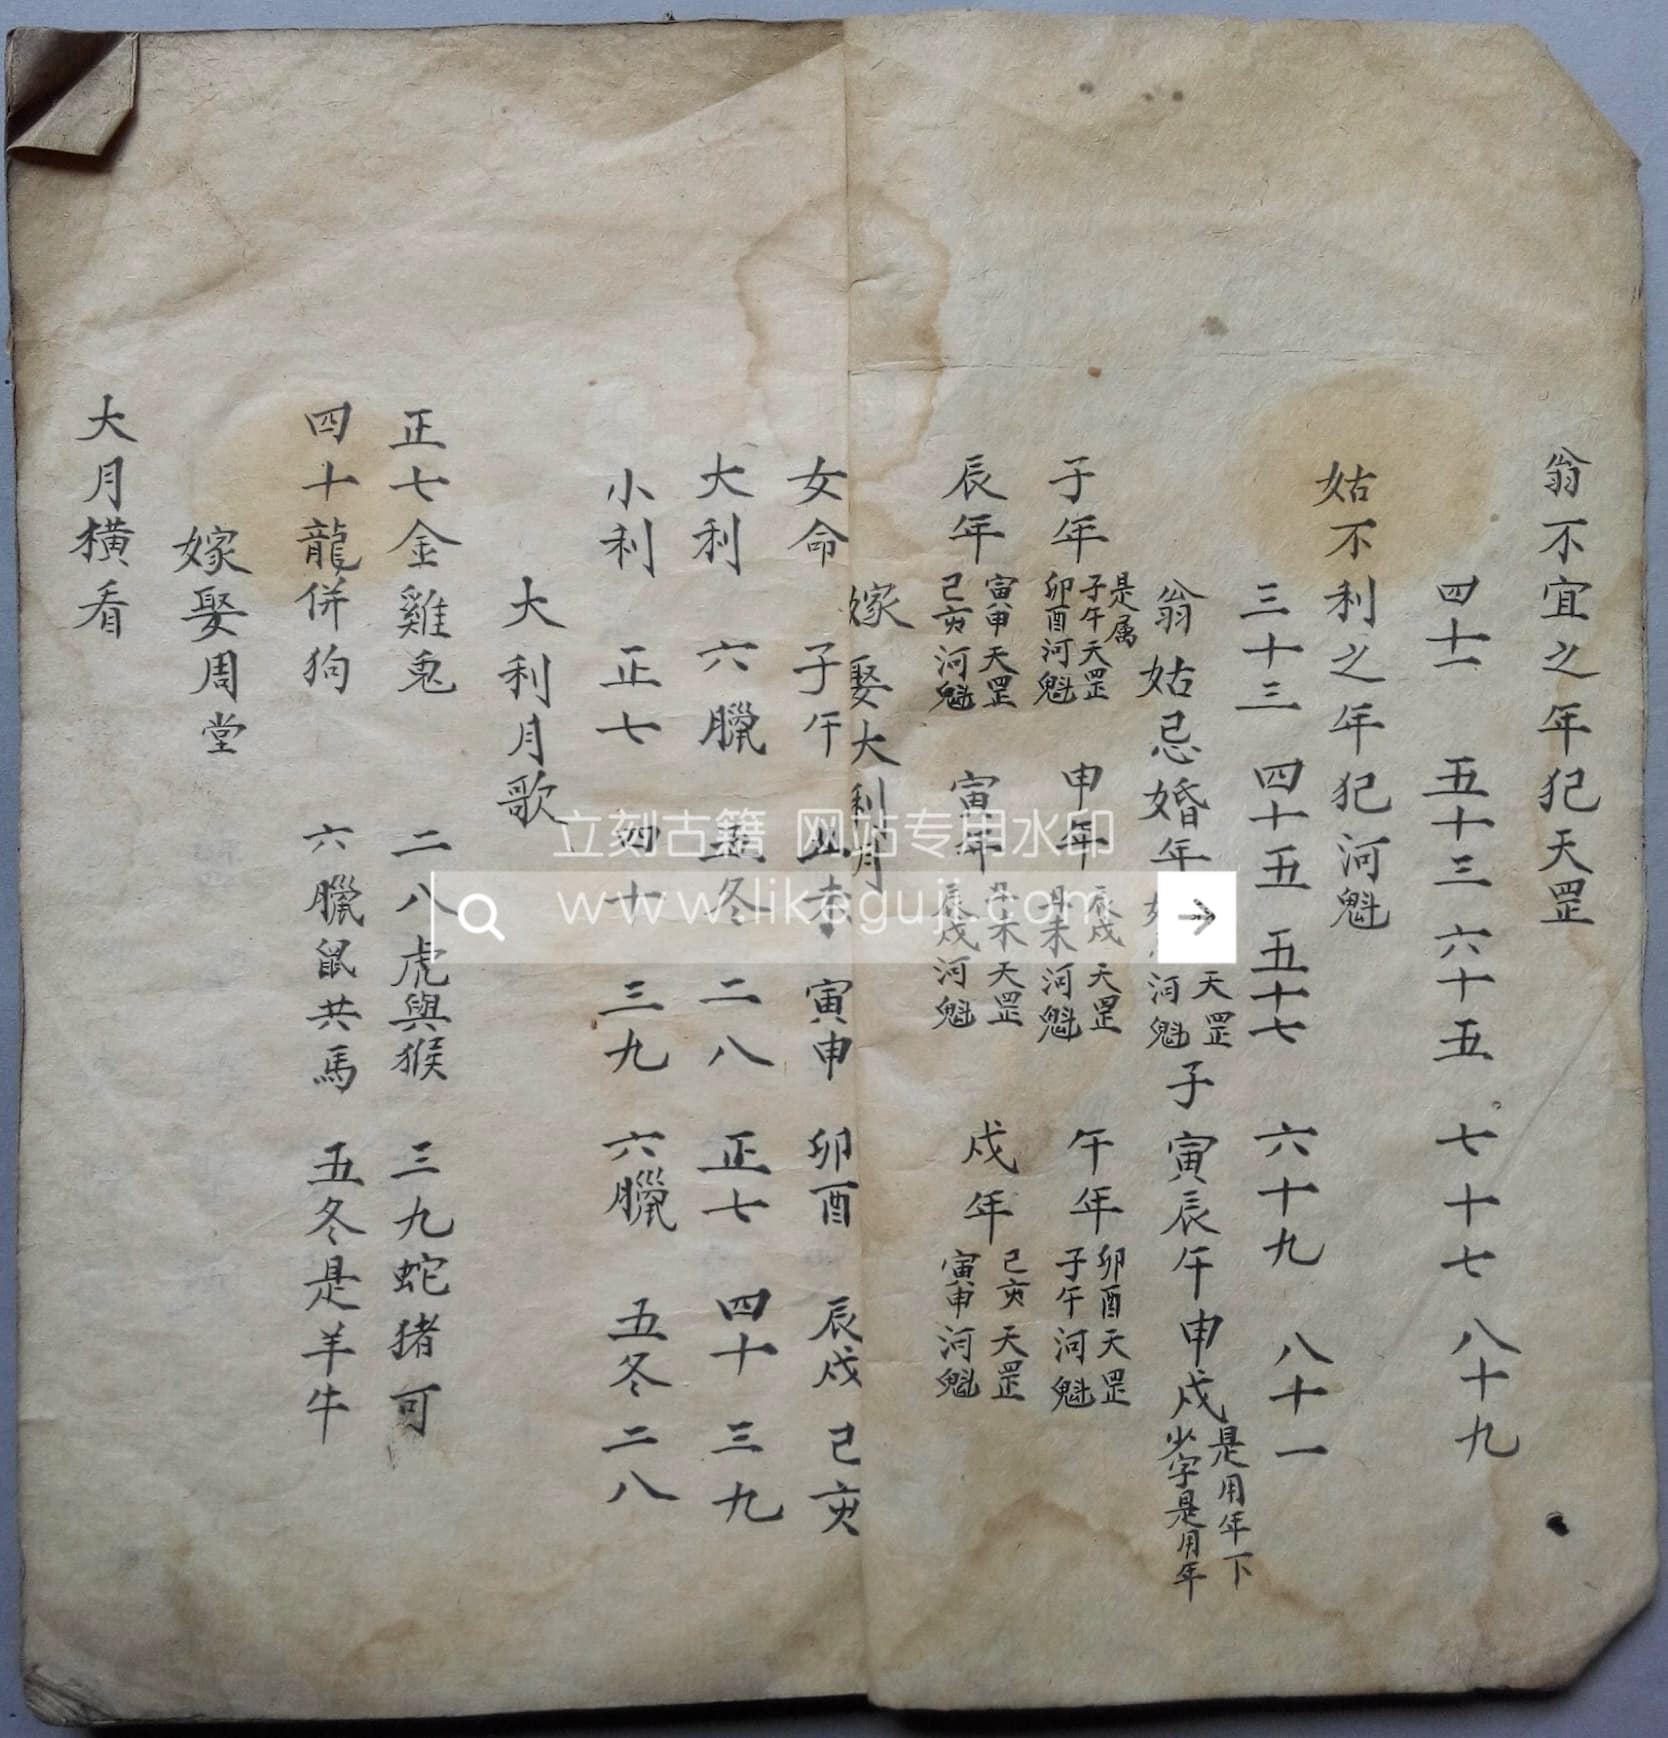 翁不宜之年犯天罡
四十一 五十三 六十五 七十七 八十九
姑不利之年犯河魁
三十三 四十五 五十七 六十九 八十一
翁姑忌婚年 天罡 河魁 子寅辰午申戌 是用年下 少字是用年
子年 是属 子午天罡 卯酉河魁 申年 辰戌天罡 丑未河魁 午年 卯酉天罡 子午河魁
辰年 寅申天罡 己亥河魁 寅年 丑未天罡 辰戌河魁 戌年 己亥天罡 寅申河魁
嫁娶大利月
女命 子午 丑未 寅申 卯酉 辰戌 己亥
大利 六臘 五冬 二八 正七 四十 三九
小利 正七 四十 三九 六臘 五冬 二八
大利月歌
正七金雞兎 二八虎與猴 三九蛇猪可
四十龍併狗 六臘鼠共馬 五冬是羊牛
嫁娶周堂
大月橫看
立刻古籍 网站专用水印
www.likeguji.com